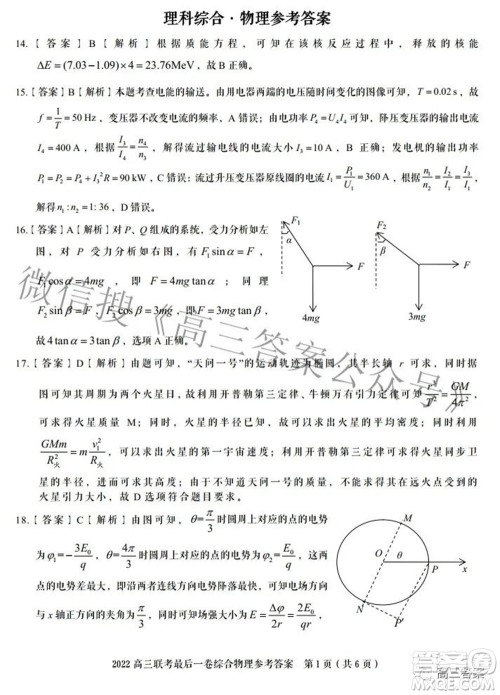 理科综合·物理参考答案
14.【答案】B【解析】根据质能方程,可知在该核反应过程中,释放的核能
ΔE=(7.03-1.09)×4=23.76MeV,故B正确。
15.【答案】B【解析】本题考查电能的输送。由用电器两端的电压随时间变化的图像可知,T=0.02 s,故
f=1/T=50 Hz,变压器不改变电流的频率,A错误;由电功率P₄=U₄I₄可知,降压变压器的输出电流
I₄=400 A,根据I₃/I₄=n₄/n₃,可求得流过输电线的电流大小I₃=I₂=30 A,B正确;发电机的输出功率
P₁=P₄+I₃²R=90 kW,C错误;流过升压变压器原线圈的电流I₁=P₁/U₁=360 A,根据n₁/n₂=I₂/I₁,
解得n₁:n₂=1:36,D错误。
16.【答案】A【解析】对P、Q组成的系统,受力分析如左
图,对P受力分析如右图,有F₁sinα=F,
F₁cosα=4mg,即F=4mgtanα;同理
F₂sinβ=F,F₂cosβ=3mg,即F=3mgtanβ,
故4tanα=3tanβ,A正确。
F₁
α
F
4mg
F₂
β
F
3mg
17.【答案】D【解析】由题可知,“天问一号”的运动轨迹为椭圆,其半长轴r可求,根据
图可知其周期大约为两个火星日,故可求出其周期T,可以利用开普勒第三定律、牛顿第二定律r³/T²=GM/4π²
可求得火星的质量M。同时,火星的半径已知,故可以求出火星的平均密度,根据
GMm/R火²=mv₁²/R火,可以求出火星的第一宇宙速度;利用开普勒第三定律可以求得火星同步卫
星的半长轴,即半径。由于不知道天问一号的质量,故不能求得天问一号在近火点或远火点受到的
火星引力大小,D选项符合题目要求。
18.【答案】C【解析】由图可知,θ=π/3圆周上对应的点的电势
为φ₁=-3E₀/q,θ=4π/3圆周上对应的点的电势
为φ₂=E₀/q,即沿两者连线方向上电势变化最快,即
与x轴正方向的夹角π/3方向,E=Δφ/2r=2E₀/rq,故
C正确。
M
O
θ
P
x
N
2022高三联考最后一卷综合物理参考答案 第1页(共6页)
微信搜《高三答案公众号》
高三答案